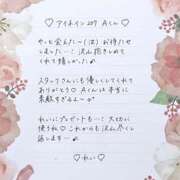 ♡ アイネイン 207 Aくん ♡
やっと会えた〜(泣) お待たせ
しました…! 沢山指名して
くれて嬉しかった
スタッフさんにも優しくしてくれて
ありがとう♡ Aくんは本当に
素敵すぎるよー
れいにプレゼントも…! 大切に
使うね♡ これからも沢山尽くし
返します…
♡ れい ♡